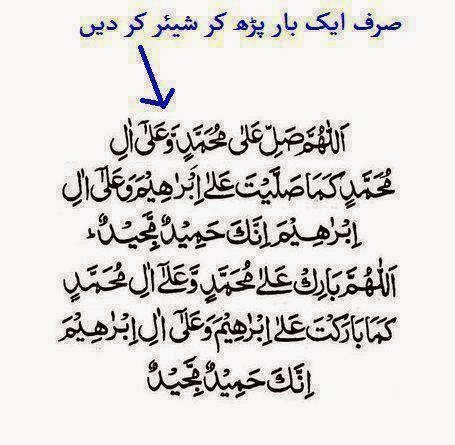 صرف ایک بار پڑھ کر شیئر کر دیں
اَللّٰهُمَّ صَلِّ عَلٰى مُحَمَّدٍ وَّعَلٰٓى اٰلِ
مُحَمَّدٍ كَمَا صَلَّيْتَ عَلٰٓى اِبْرٰهِيْمَ وَعَلٰٓى اٰلِ
اِبْرٰهِيْمَ اِنَّكَ حَمِيْدٌ مَّجِيْدٌ ؕ
اَللّٰهُمَّ بَارِكْ عَلٰى مُحَمَّدٍ وَّعَلٰٓى اٰلِ مُحَمَّدٍ
كَمَا بَارَكْتَ عَلٰٓى اِبْرٰهِيْمَ وَعَلٰٓى اٰلِ اِبْرٰهِيْمَ
اِنَّكَ حَمِيْدٌ مَّجِيْدٌ